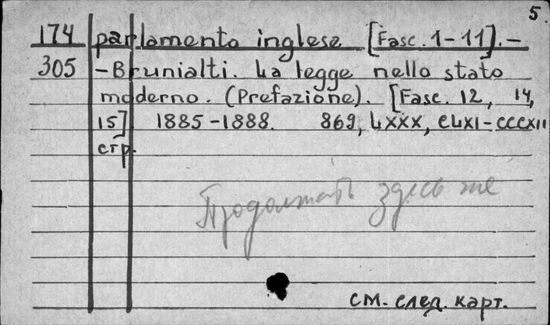 5
174 parlamento inglese [Fasc. 1-11].-
305 -Brunialti. La legge nello stato
moderno. (Prefazione). [Fasc. 12, 14,
15] 1885-1888. 869, LXXX, CLXI-CCCXII
стр.
Продолжать здесь же
см. след. карт.